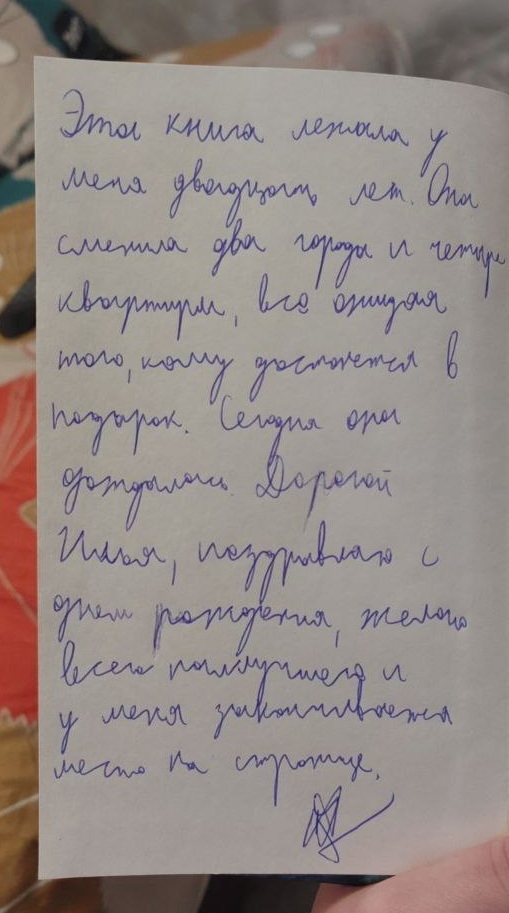 Эта книга лежала у
меня двадцать лет. Она
сменила два города и четыре
квартиры, всё ожидая
того, кому достанется в
подарок. Сегодня она
дождалась. Дорогой
Илья, поздравляю с
днем рождения, желаю
всего наилучшего и
у меня заканчивается
место на странице.